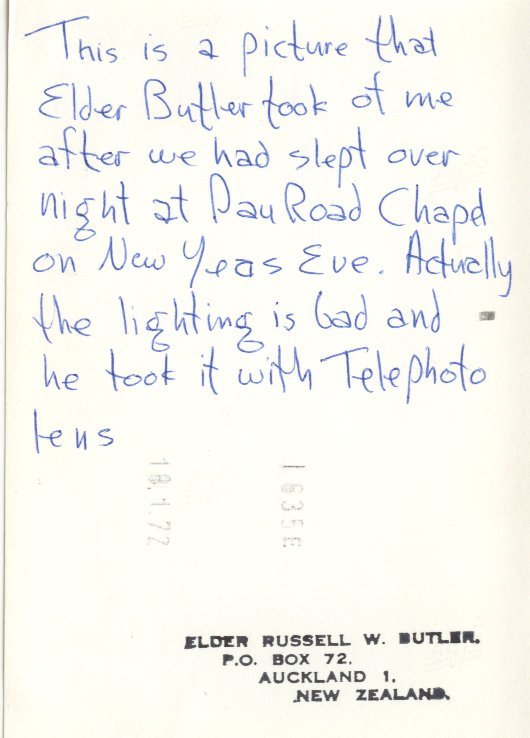 This is a picture that
Elder Butler took of me
after we had slept over
night at Pau Road Chapel
on New Yeas Eve. Actually
the lighting is bad and
he took it with Telephoto
lens
18.1.72
ELDER RUSSELL W. BUTLER.
P.O. BOX 72,
AUCKLAND 1,
NEW ZEALAND.